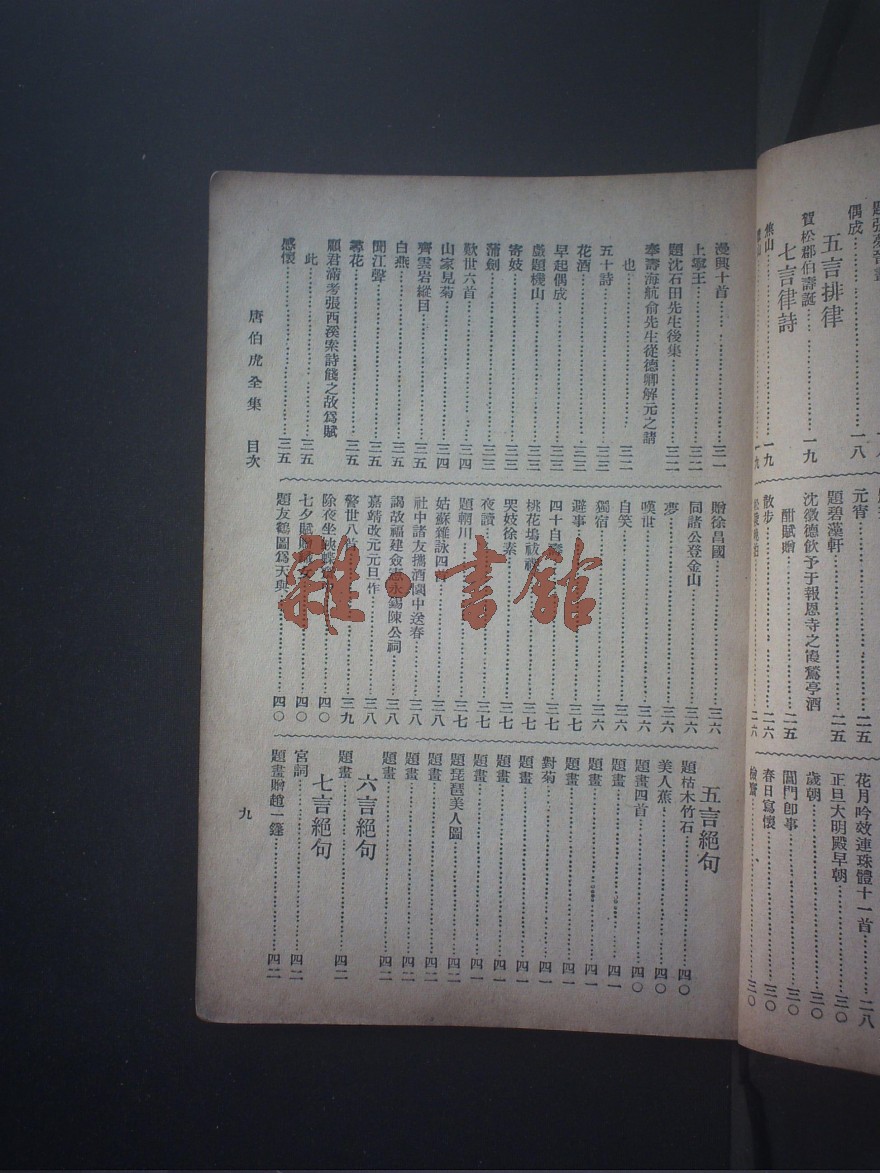 偶成
五言排律
賀松郡伯壽誕……一九
七言律詩
焦山……一九
元宵……二五
題碧藻軒……二五
沈徵德飲予于報恩寺之霞鶩亭酒
酣賦贈……二五
散步……二六
花月吟效連珠體十一首……二八
正旦大明殿早朝……三〇
歲朝……三〇
閶門卽事……三〇
春日寫懷……三〇
漫興十首……三一
上寧王……三二
題沈石田先生後集……三二
奉壽海航俞先生從德卿解元之請
也……三二
五十詩……三三
花酒……三三
早起偶成……三三
蘆題機山……三三
寄妓……三三
蒲劍……三三
歎世六首……三四
山家見菊……三四
齊雲岩縱目……三五
白燕……三五
聞江聲……三五
尋花……三五
顧君滿考張西溪案詩餞之故爲賦
此……三五
感懷……三五
贈徐昌國……三六
同諸公登金山……三六
夢……三六
嘆世……三六
自笑……三六
獨宿……三六
避事……三七
四十自壽……三七
桃花塢祓禊……三七
哭妓徐素……三七
夜讀……三七
題輞川……三七
姑蘇雜詠四首……三八
社中諸友攜酒園中送春……三八
謁故福建僉憲永錫陳公祠……三八
嘉靖改元元旦作……三八
警世八首……三九
除夜坐蛺蝶……四〇
七夕賦贈織女……四〇
題友鶴圖爲天與……四〇
五言絕句
題枯木竹石……四〇
美人蕉……四〇
題畫四首……四〇
題畫……四一
題畫……四一
題畫……四一
對菊……四一
題畫……四一
題畫……四一
題畫……四一
題琵琶美人圖……四二
題畫……四二
題畫……四二
題畫……四二
六言絕句
題畫……四二
七言絕句
宮詞……四二
題畫贈趙一篷……四二
唐伯虎全集 目次
九
雜·書館